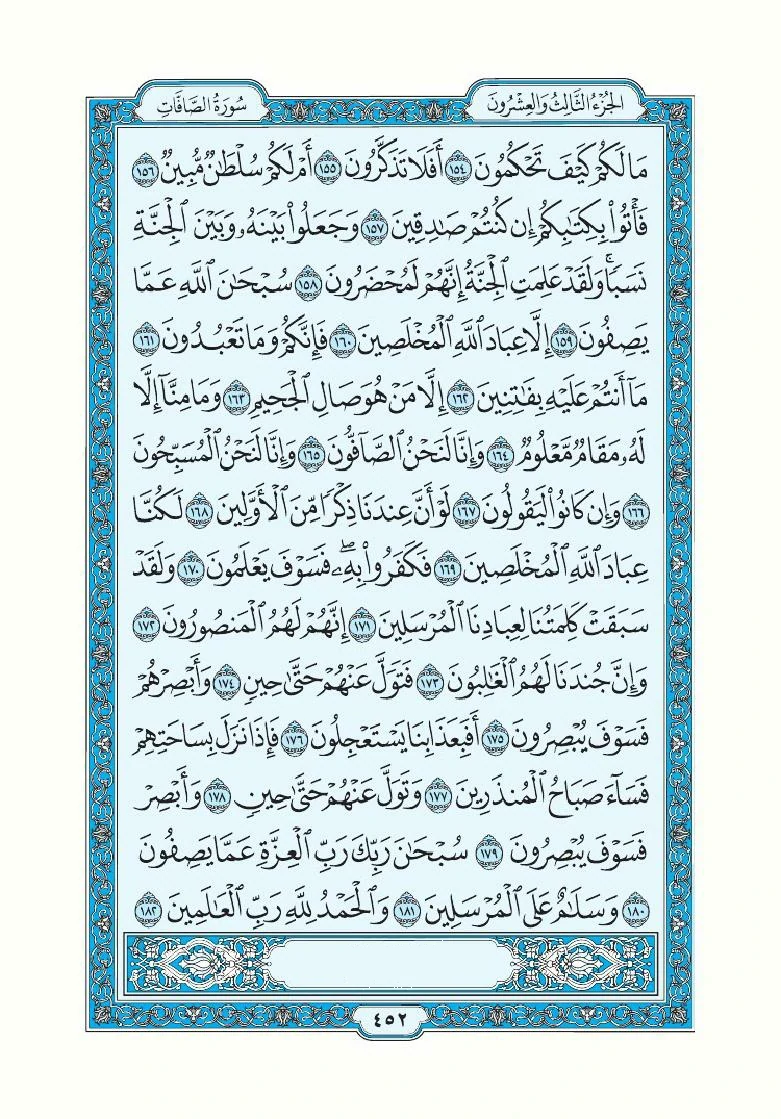 الجُزْءُ الثَّالِثُ وَالعِشْرُونَ
سُورَةُ الصَّافَّاتِ
مَا لَكُمْ كَيْفَ تَحْكُمُونَ ١٥٤ أَفَلَا تَذَكَّرُونَ ١٥٥ أَمْ لَكُمْ سُلْطَٰنٌ مُّبِينٌ ١٥٦
فَأْتُوا۟ بِكِتَٰبِكُمْ إِن كُنتُمْ صَٰدِقِينَ ١٥٧ وَجَعَلُوا۟ بَيْنَهُۥ وَبَيْنَ ٱلْجِنَّةِ
نَسَبًۭا ۚ وَلَقَدْ عَلِمَتِ ٱلْجِنَّةُ إِنَّهُمْ لَمُحْضَرُونَ ١٥٨ سُبْحَٰنَ ٱللَّهِ عَمَّا
يَصِفُونَ ١٥٩ إِلَّا عِبَادَ ٱللَّهِ ٱلْمُخْلَصِينَ ١٦٠ فَإِنَّكُمْ وَمَا تَعْبُدُونَ ١٦١
مَآ أَنتُمْ عَلَيْهِ بِفَٰتِنِينَ ١٦٢ إِلَّا مَنْ هُوَ صَالِ ٱلْجَحِيمِ ١٦٣ وَمَا مِنَّآ إِلَّا
لَهُۥ مَقَامٌ مَّعْلُومٌ ١٦٤ وَإِنَّا لَنَحْنُ ٱلصَّآفُّونَ ١٦٥ وَإِنَّا لَنَحْنُ ٱلْمُسَبِّحُونَ
١٦٦ وَإِن كَانُوا۟ لَيَقُولُونَ ١٦٧ لَوْ أَنَّ عِندَنَا ذِكْرًا مِّنَ ٱلْأَوَّلِينَ ١٦٨ لَكُنَّا
عِبَادَ ٱللَّهِ ٱلْمُخْلَصِينَ ١٦٩ فَكَفَرُوا۟ بِهِۦ ۖ فَسَوْفَ يَعْلَمُونَ ١٧٠ وَلَقَدْ
سَبَقَتْ كَلِمَتُنَا لِعِبَادِنَا ٱلْمُرْسَلِينَ ١٧١ إِنَّهُمْ لَهُمُ ٱلْمَنصُورُونَ ١٧٢
وَإِنَّ جُندَنَا لَهُمُ ٱلْغَٰلِبُونَ ١٧٣ فَتَوَلَّ عَنْهُمْ حَتَّىٰ حِينٍ ١٧٤ وَأَبْصِرْهُمْ
فَسَوْفَ يُبْصِرُونَ ١٧٥ أَفَبِعَذَابِنَا يَسْتَعْجِلُونَ ١٧٦ فَإِذَا نَزَلَ بِسَاحَتِهِمْ
فَسَآءَ صَبَاحُ ٱلْمُنذَرِينَ ١٧٧ وَتَوَلَّ عَنْهُمْ حَتَّىٰ حِينٍ ١٧٨ وَأَبْصِرْ
فَسَوْفَ يُبْصِرُونَ ١٧٩ سُبْحَٰنَ رَبِّكَ رَبِّ ٱلْعِزَّةِ عَمَّا يَصِفُونَ
١٨٠ وَسَلَٰمٌ عَلَى ٱلْمُرْسَلِينَ ١٨١ وَٱلْحَمْدُ لِلَّهِ رَبِّ ٱلْعَٰلَمِينَ ١٨٢
٤٥٢